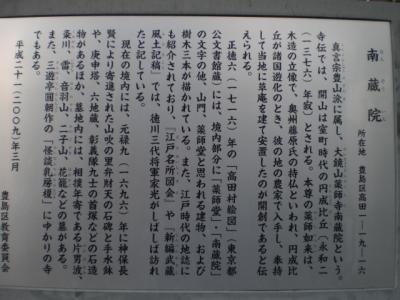 南蔵院
所在地 豊島区高田一ー九ー一六
真言宗豊山派に属し、大鏡山薬師寺南蔵院という。
寺伝では、開山は室町時代の円成比丘（永和二
（一三七六）年寂）とされる。本尊の薬師如来は、
木造の立像で、奥州藤原氏の持仏といわれ、円成比
丘が諸国遊化のとき、彼の地の農家で入手し、奉持
して当地に草庵を建て安置したのが開創であると伝
えられる。
正徳六（一七一六）年の「高田村絵図」（東京都
公文書館蔵）には、境内部分に「薬師堂」・「南蔵院」
の文字の他、山門、薬師堂と思われる建物、および
樹木三本が描かれている。また、江戸時代の地誌に
も紹介されており、『江戸名所図会』や『新編武蔵
風土記稿』では、徳川三代将軍家光がしばしば訪れ
たと記している。
現在の境内には、元禄九（一六九六）年に神保長
賢により寄進された山吹の里弁財天の石碑と手水鉢
や、庚申塔、六地蔵、彰義隊九士の首塚などの石造
物があるほか、墓地内には、相撲年寄である片男波、
粂川、雷、音羽山、二子山、花籠などの墓がある。
また、三遊亭圓朝作の「怪談乳房榎」にゆかりの寺
でもある。
平成二十一（二〇〇九）年三月
豊島区教育委員会